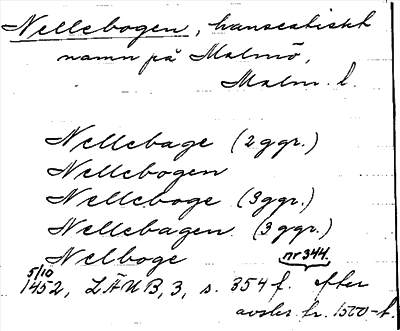 Nellebogen, hanseatiskt
namn på Malmö,
Malm. l.
Nellebage (2 ggr.)
Nellebogen
Nelleboge (3ggr.)
Nellebagen (3 ggr.)
Nelboge nr 344.
5/10
1452, LÄUB, 3, s. 354 f. efter
avskr. fr. 1500-t.